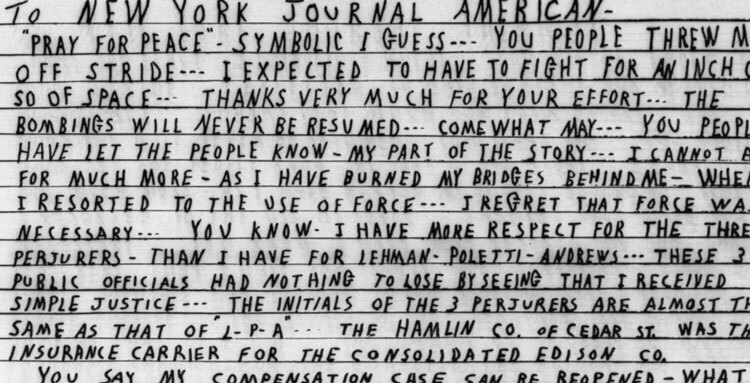 TO NEW YORK JOURNAL AMERICAN-
"PRAY FOR PEACE"- SYMBOLIC I GUESS--- YOU PEOPLE THREW M
OFF STRIDE--- I EXPECTED TO HAVE TO FIGHT FOR AN INCH O
SO OF SPACE--- THANKS VERY MUCH FOR YOUR EFFORT--- THE
BOMBINGS WILL NEVER BE RESUMED--- COME WHAT MAY--- YOU PEOPL
HAVE LET THE PEOPLE KNOW- MY PART OF THE STORY--- I CANNOT
FOR MUCH MORE- AS I HAVE BURNED MY BRIDGES BEHIND ME- WHE
I RESORTED TO THE USE OF FORCE--- I REGRET THAT FORCE WA
NECESSARY--- YOU KNOW- I HAVE MORE RESPECT FOR THE THRE
PERJURERS- THAN I HAVE FOR LEHMAN- POLETTI-ANDREWS--- THESE 3
PUBLIC OFFICIALS HAD NOTHING TO LOSE BY SEEING THAT I RECEIVED
SIMPLE JUSTICE--- THE INITIALS OF THE 3 PERJURERS ARE ALMOST TH
SAME AS THAT OF "L-P-A"-- THE HAMLIN CO. OF CEDAR ST. WAS TH
INSURANCE CARRIER FOR THE CONSOLIDATED EDISON CO.
YOU SAY MY COMPENSATION CASE CAN BE REOPENED- WHAT